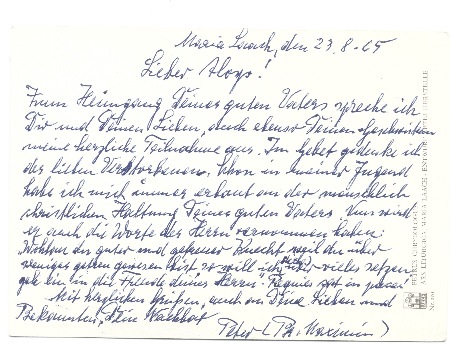 Maria Laach, den 23.8.65
Lieber Aloys!
Zum Heimgang Deines guten Vaters spreche ich
Dir und Deinen Lieben, auch ebenso Deinen Geschwistern
meine herzliche Teilnahme aus. Im Gebet gedenke ich
des lieben Verstorbenen. Schon in meiner Jugend
habe ich mich immer erbaut an der menschlich
christlichen Haltung Deines guten Vaters. Nun wird
er auch die Worte des Herrn vernommen haben:
Wohlan du guter und getreuer Knecht weil du über
weniges getreu gewesen bist so will ich dich über vieles setzen
geh ein in die Freude deines Herrn. Requiescat in pace!
Mit herzlichen Grüßen, auch an Deine Lieben und
Bekannten, Dein
Pater
PETRUS CHRYSOLOGUS
ARS LITURGICA MARIA LAACH